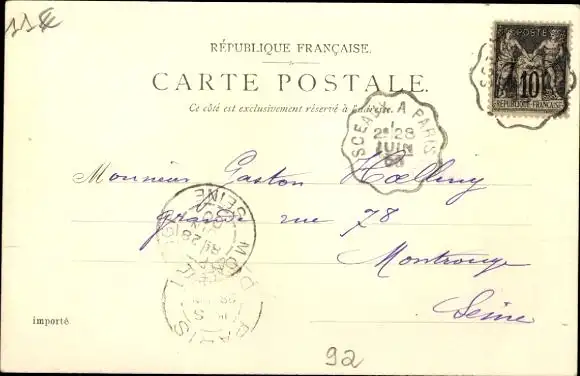 RÉPUBLIQUE FRANÇAISE.
CARTE POSTALE.
Ce côté est exclusivement réservé à l'adresse.
POSTE
10
RÉPUBLIQUE FRANÇAISE
SCEAUX A PARIS
1
2E 28
JUIN
Monsieur Gaston
grande rue 78
Montrouge
Seine
SEINE
PARIS
importé
92